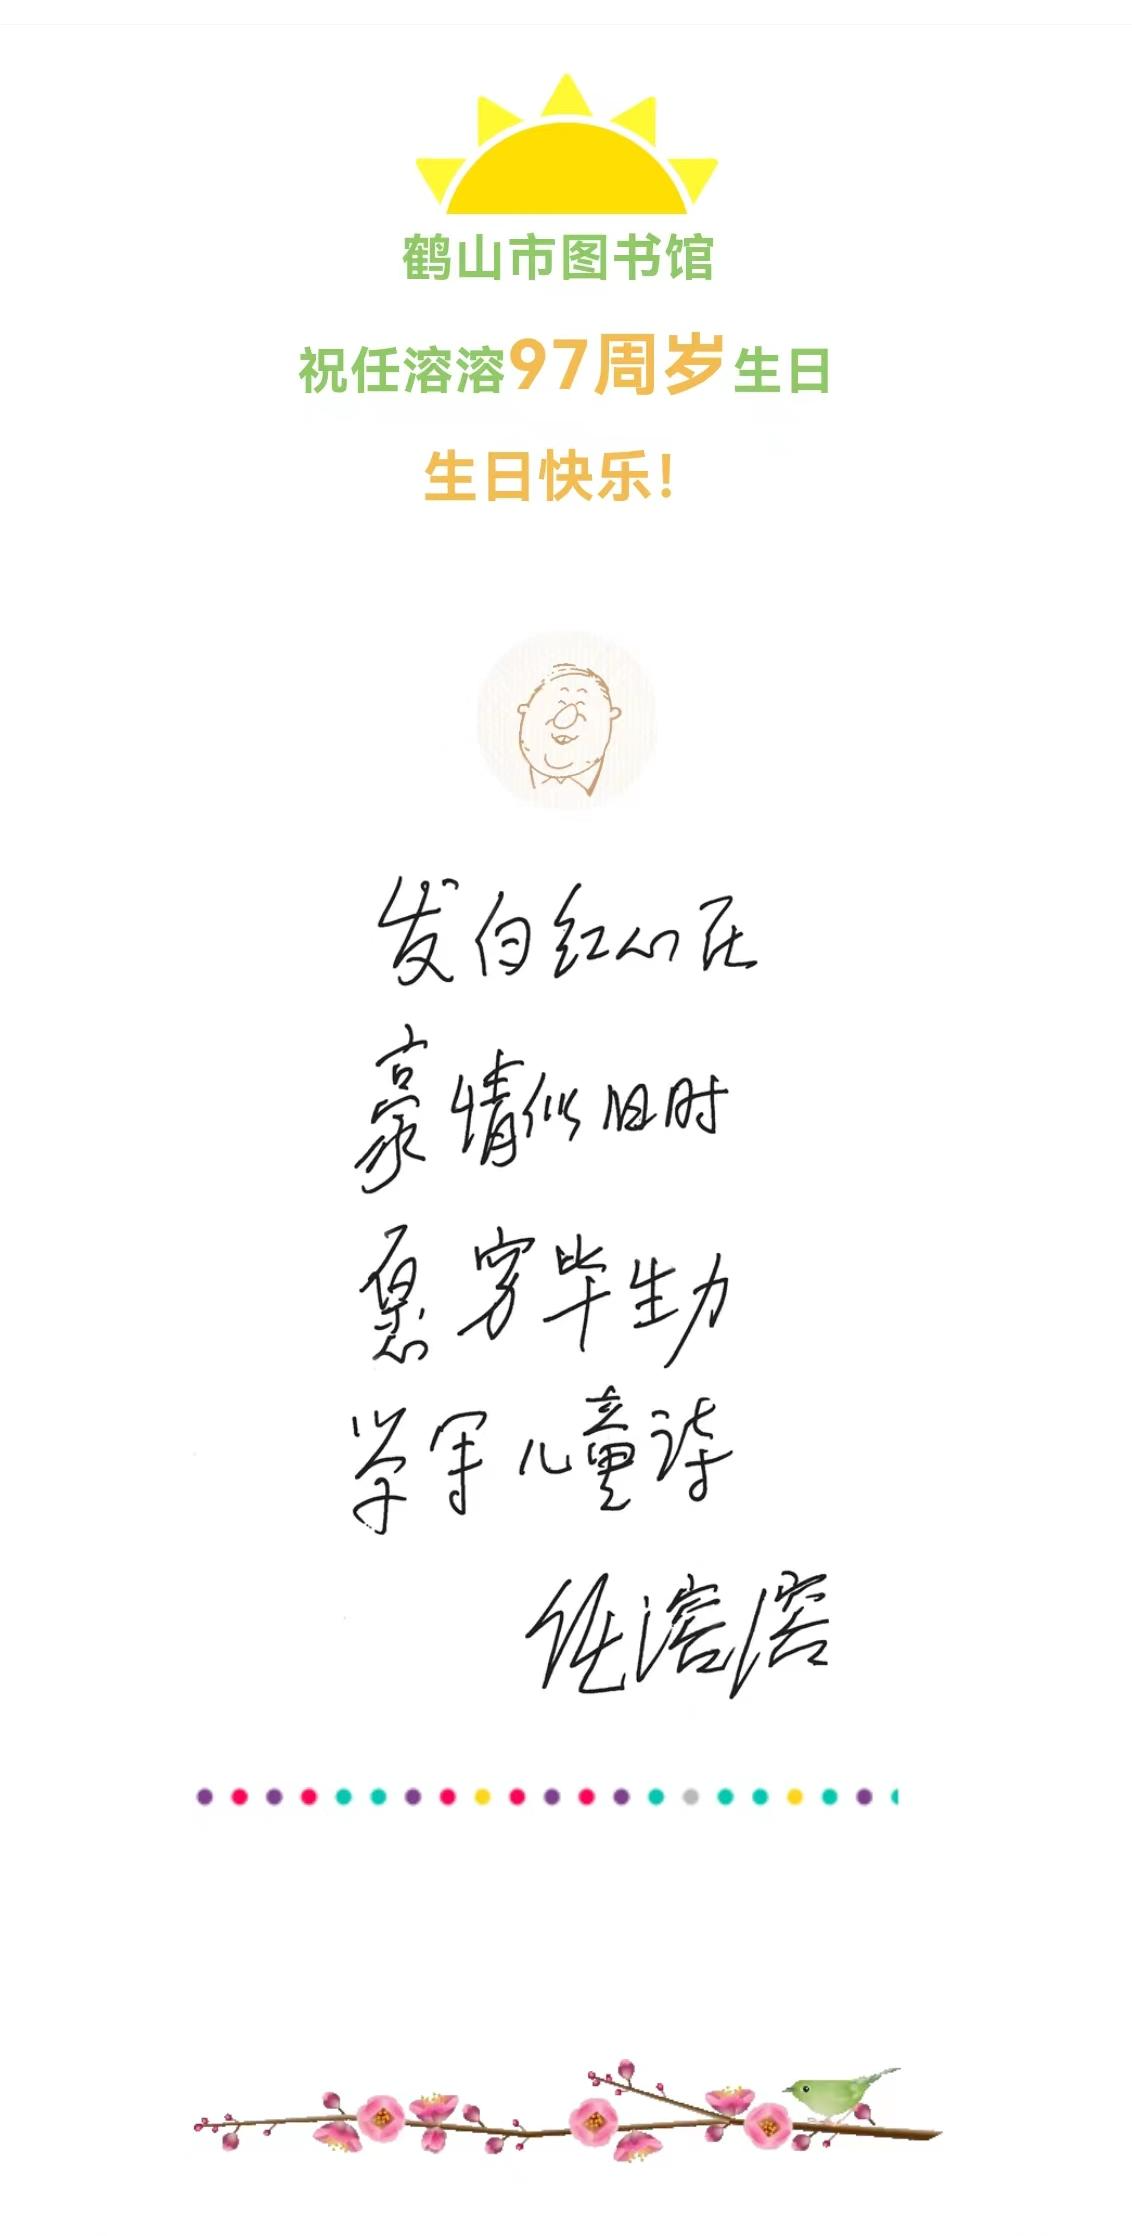 鹤山市图书馆
祝任溶溶97周岁生日
生日快乐!
发白红心在
豪情似旧时
愿穷毕生力
学写儿童诗
任溶溶